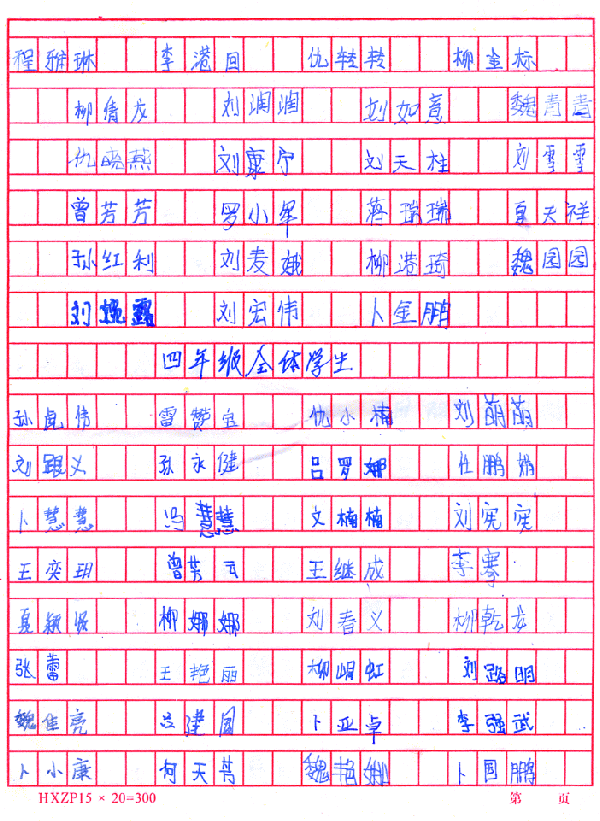 程雅琳 李港回 仇转转 柳金标
柳倩友 刘润润 刘如意 魏青青
仇晓燕 刘康宁 刘天柱 刘雪雪
曾芳芳 罗小翠 蒋瑞瑞 夏天祥
孙红利 刘麦娥 柳港琦 魏园园
刘婉露 刘宏伟 卜金鹏
四年级全体学生
孙虎伟 雷梦宝 仇小楠 刘萌萌
刘跟义 孙永健 吕罗娜 杜鹏娟
卜慧慧 冯慧慧 文楠楠 刘宪宪
王奕玥 曾芳云 王继成 李骞
夏颖 柳娜娜 刘春义 柳乾龙
张蕾 王艳丽 柳帽虹 刘路明
魏佳亮 吕建国 卜亚卓 李强武
卜小康 何天 魏艳娜 卜国鹏
HXZP15 × 20=300 第 页